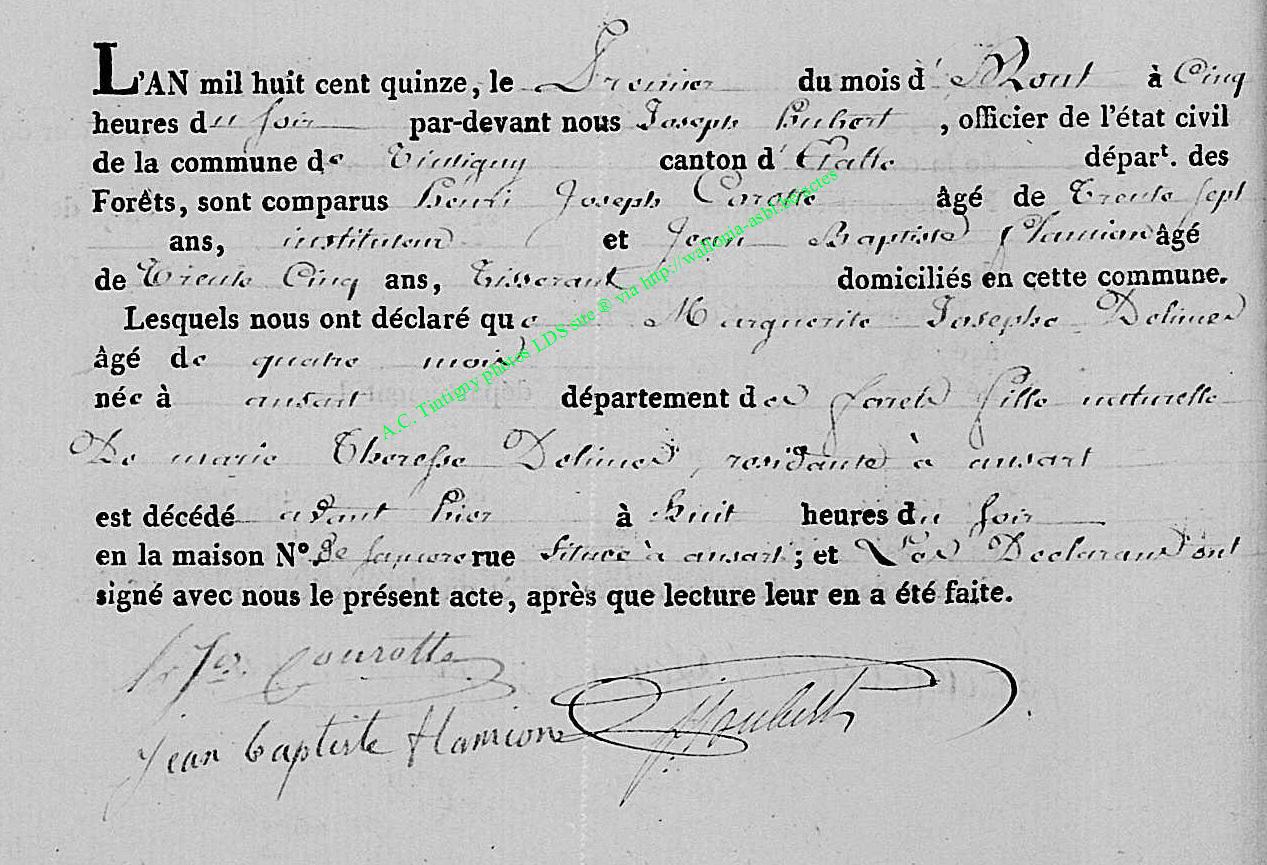 L'AN mil huit cent quinze, le Premier du mois d' Aout à Cinq
heures du soir par-devant nous Joseph Hubert, officier de l'état civil
de la commune de Tintigny canton d' Etalle départ. des
Forêts, sont comparus Henri Joseph Corotte âgé de Trente sept
ans, instituteur et Jean Baptiste flamion âgé
de Trente Cinq ans, Tisserant domiciliés en cette commune.
Lesquels nous ont déclaré que Marguerite Josephe Delimes
âgé de quatre mois
née à ansart département des forets fille naturelle
De marie Theresse Delimes, residante à ansart
est décédé avant hier à huit heures du soir
en la maison N° De sa mere rue située à ansart; et Les Declarans ont
signé avec nous le présent acte, après que lecture leur en a été faite.
h Jos. Courotte
jean baptiste flamion
J. houbert
A.C. Tintigny photos LDS site ® via http://wallonia-asbl.be/actes